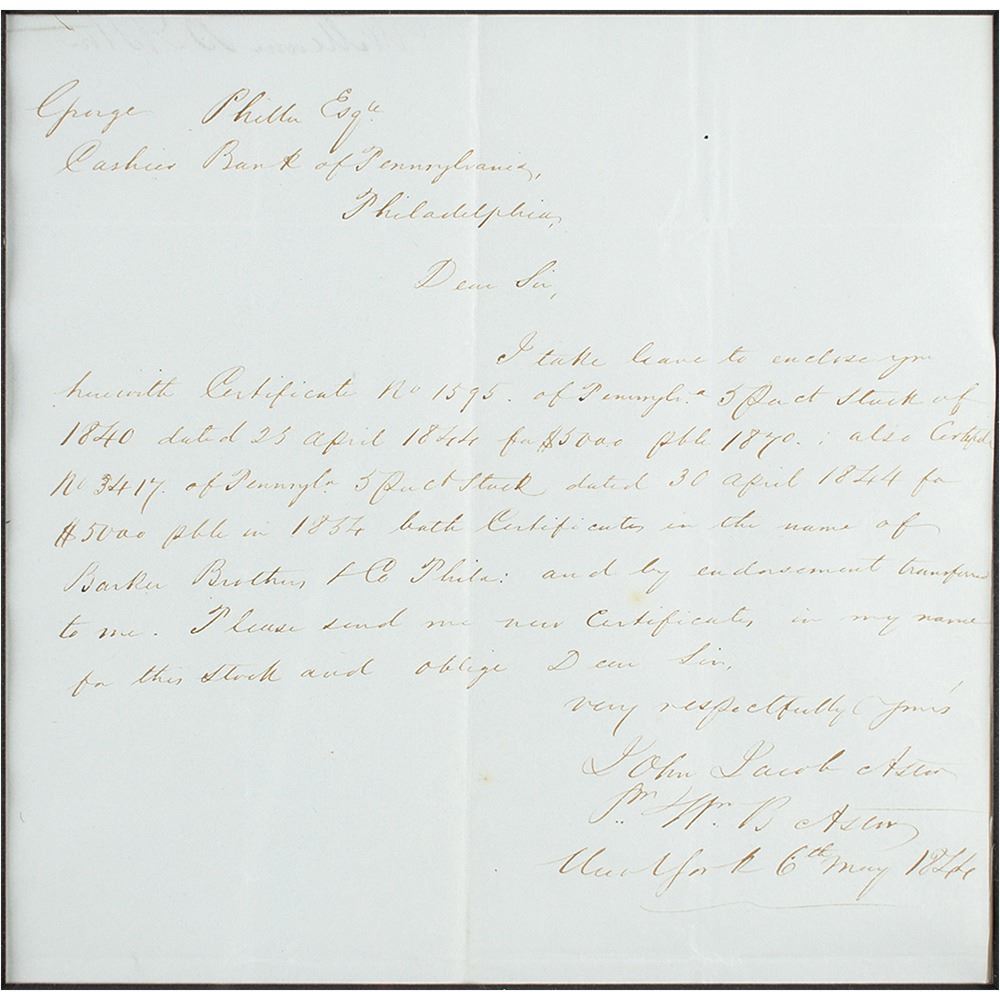 George Philler Esqre
Cashier Bank of Pennsylvania,
Philadelphia,
Dear Sir,
I take leave to enclose you
herewith Certificate No 1595. of Pennsylva 5 P ct Stock of
1840 dated 25 April 1844 for $5000 pble 1870. : also Certifict
No 3417. of Pennsyla 5 P ct Stock dated 30 April 1844 for
$5000 pble in 1854 both Certificates in the name of
Barker Brothers & Co Phila: and by endorsement transferred
to me. Please send me new Certificates, in my name
for this stock and oblige Dear Sir,
very respectfully Yours
John Jacob Astor
pr Wm B Astor
New York 6th May 1844